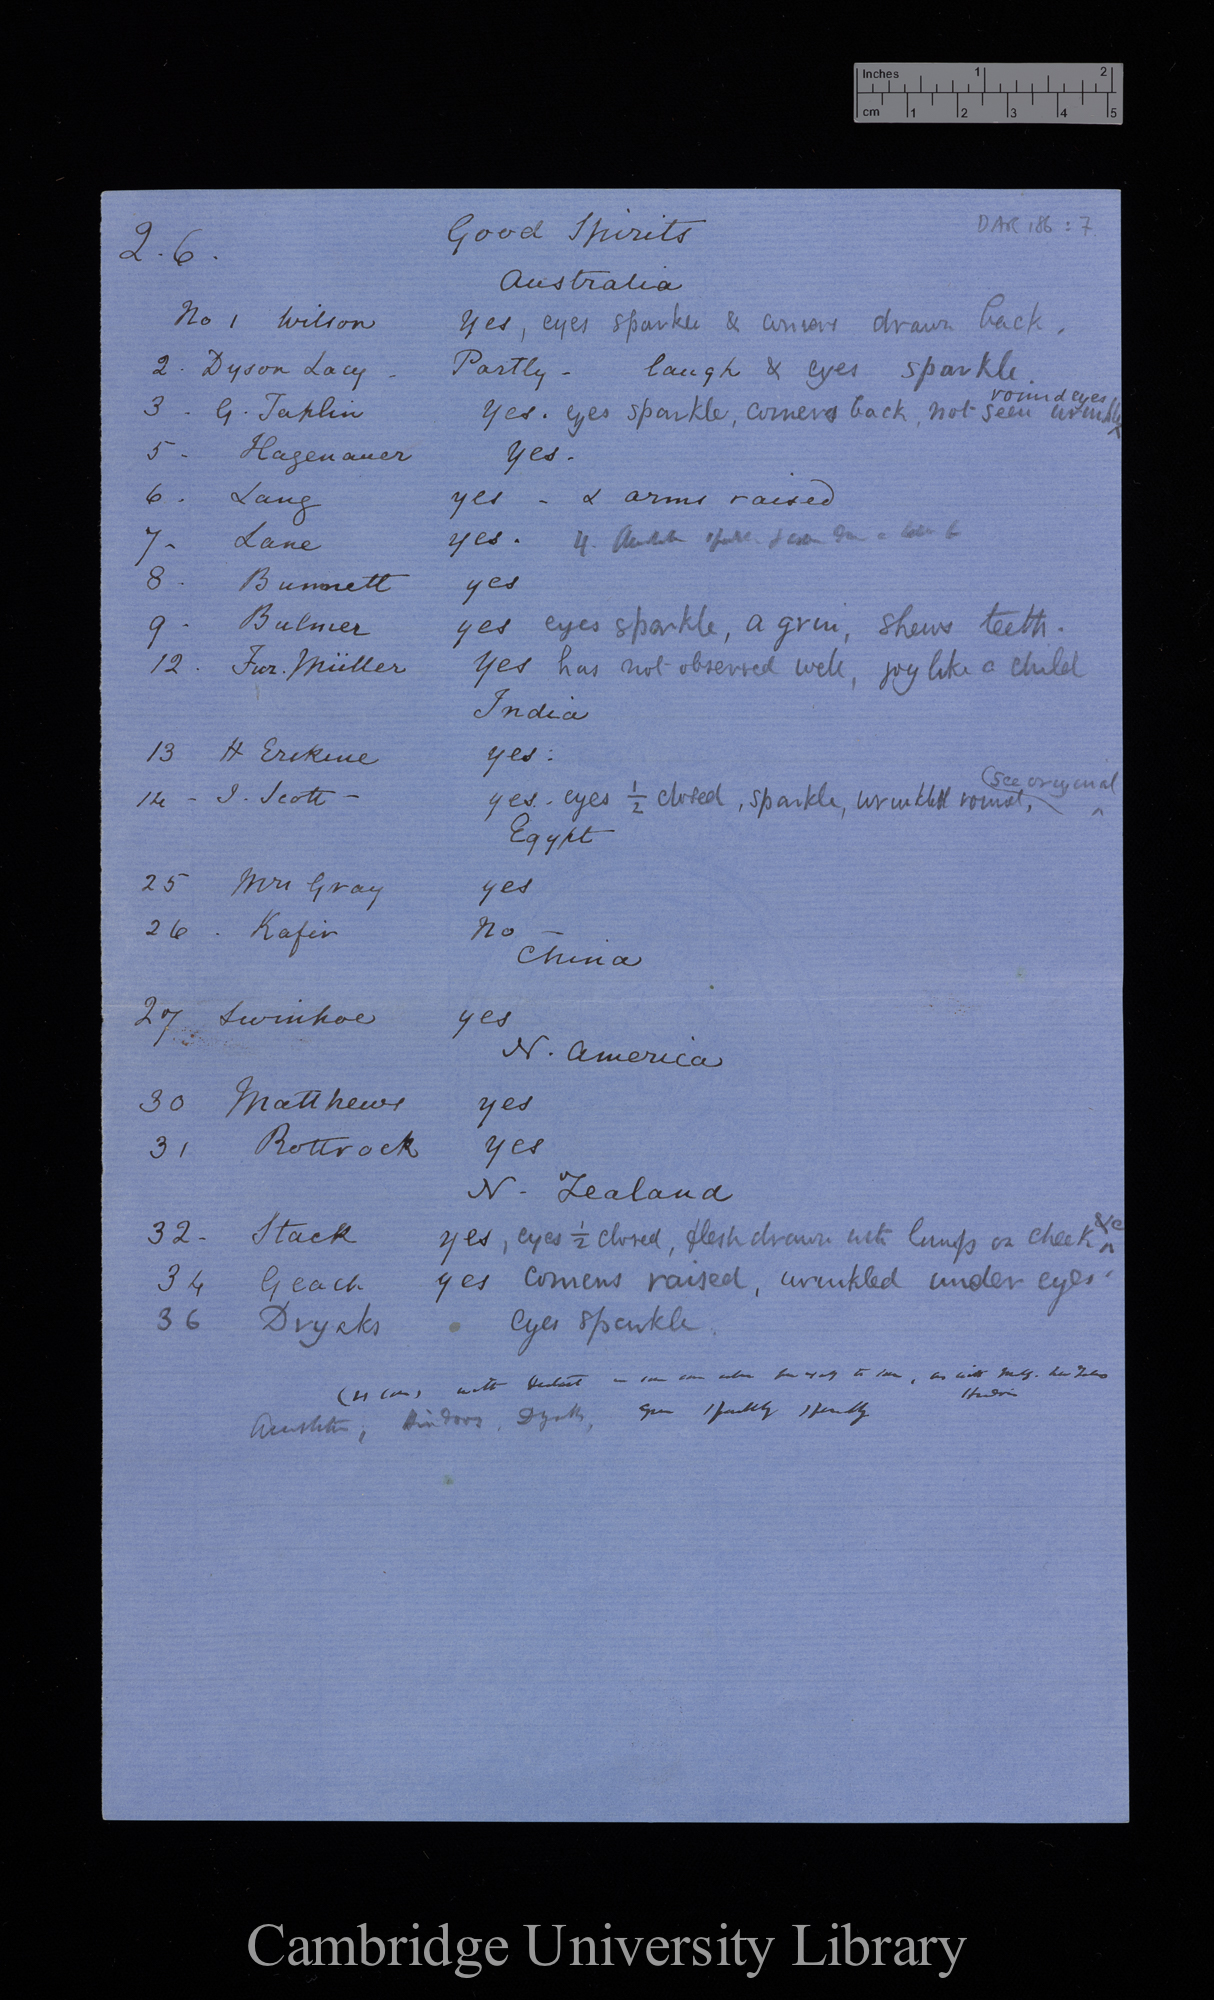 Inches 1 2
cm 1 2 3 4 5
DAR 186 : 7
Q. 6. Good Spirits
Australia
No 1 Wilson Yes, eyes sparkle & corners drawn back.
2. Dyson Lacy - Partly - laugh & eyes sparkle.
round eyes
3 - G. Taplin Yes. eyes sparkle, corners back, not seen wrinkles
5 - Hagenauer Yes.
6. Lang yes - & arms raised
7 - Lane yes. 4.
8. Bunnett yes
9 - Bulmer yes eyes sparkle, a grin, shews teeth.
12. Fur. Müller Yes has not observed well, joy like a child
India
13 H Erskine yes:
(see original
14 - J. Scott - yes - eyes ½ closed, sparkle, wrinkled round,
Egypt
25 Mrs Gray yes
26. Kafir No -
China
27 Swinhoe yes
N. America
30 Matthews yes
31 Rottrock yes
N - Zealand
&c
32 - Stack yes, eyes ½ closed, flesh drawn into lumps on cheek
34 Geach yes corners raised, wrinkled under eyes.
36 Dryaks eyes sparkle.
with
Hindoos, Dyaks,